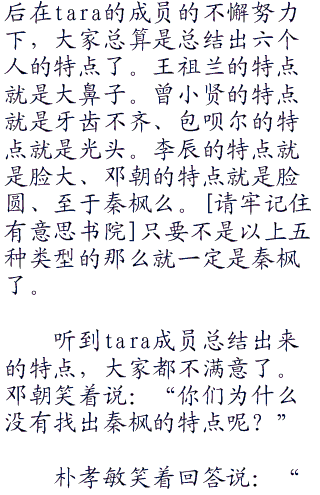 后在tara的成员的不懈努力
下，大家总算是总结出六个
人的特点了。王祖兰的特点
就是大鼻子。曾小贤的特点
就是牙齿不齐、包呗尔的特
点就是光头。李辰的特点就
是脸大、邓朝的特点就是脸
圆、至于秦枫么。[请牢记住
有意思书院]只要不是以上五
种类型的那么就一定是秦枫
了。
听到tara成员总结出来
的特点，大家都不满意了。
邓朝笑着说：“你们为什么
没有找出秦枫的特点呢？”
朴孝敏笑着回答说：“